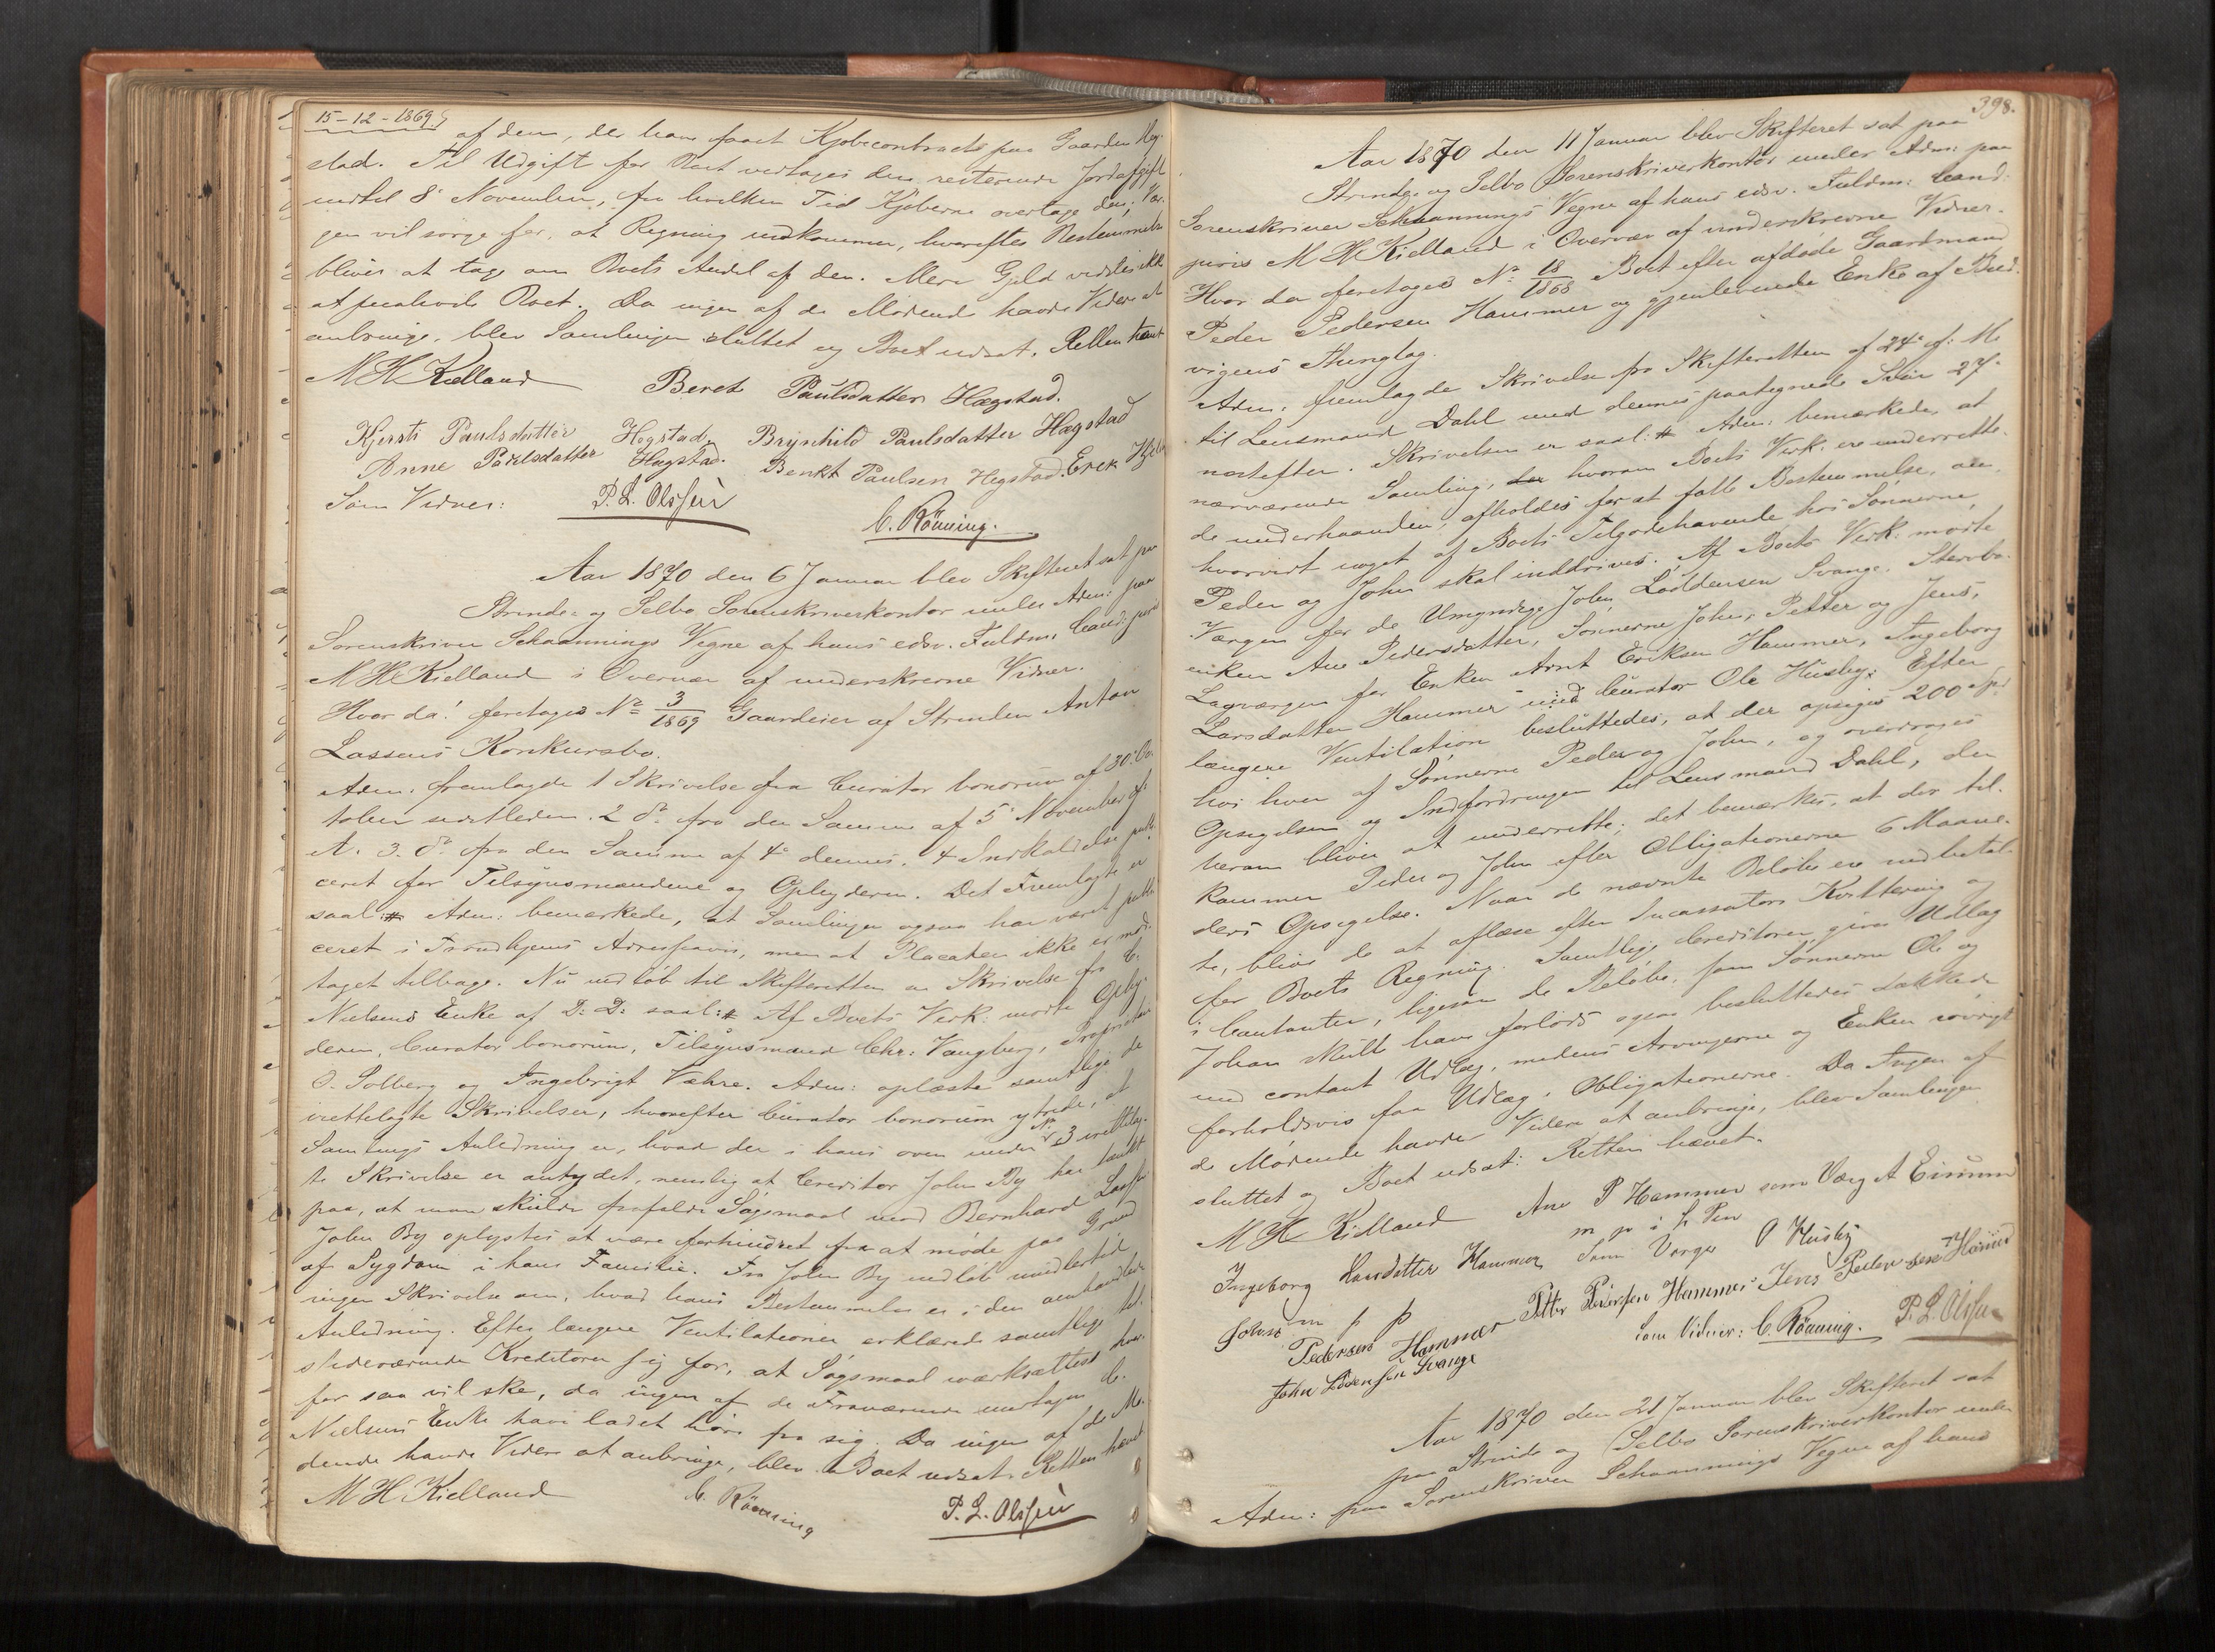 15-12-1869
af dem, der have faaet Kjøbecontract paa Gaarden Hog-
stad. Til Udgift for Boet vedtages den resterende Jordafgift
indtil 8de November, fra hvilken Tid Kjøberne overtage den; Vær-
gen vil sørge for, at Regning indkommer, hvorefter Bestemmelse
bliver at tage om Boets Andel af den. Mere Gjeld vidstes ikke
at paahvile Boet. Da ingen af de Mødende havde Videre at
anbringe, blev Samlingen sluttet og Boet udsat. Retten hævet
M H Kielland Beret Paulsdatter Hægstad.
Kjersti Paulsdatter Hegstad. Brynhild Paulsdatter Hægstad
Anne Paulsdatter Hagstad. Benkt Paulsen Hegstad. Erek
Som Vidner: P. L. Olssen C. Rönning.
Aar 1870 den 6 Januar blev Skifteret sat paa
Strinde- og Selbo Sorenskriverkontor under Adm: paa
Sorenskriver Schaannings Vegne af hans edsv. Fuldm: Cand: juris
M H Kielland i Overvær af underskrevne Vidner.
Hvor da! foretoges No 3/1869 Gaardeier af Strinden Anton
Lassens Konkursbo.
Adm: fremlagde 1 Skrivelse fra Curator bonorum af 30. Oc-
tober sidstleden. 2 do fra den Samme af 5 November f:
A. 3. do fra den Samme af 4de dennes. 4 Indkaldelse publi-
ceret for Tilsynsmændene og Opbyderen. Det Fremlagte er
saal: # Adm: bemærkede, at Samlingen ogsaa har været publi-
ceret i Trondhjems Adresseavis, men at Placaten ikke er mod-
taget tilbage. Nu indløb til Skifteretten en Skrivelse fra C.
Nielsens Enke af D: D: saal: # Af Boets Vedk: mødte Opby-
deren, Curator bonorum, Tilsynsmand Chr: Vangberg, Proprietær
O. Solberg og Ingebrigt Vahre. Adm: oplæste samtlige de
irettelagte Skrivelser, hvorefter Curator bonorum ytrede, at
Samlings Anledning er, hvad der i hans oven under No 3 irettelag-
te Skrivelse er antydet, nemlig at Creditor John By har tænkt
paa, at man skulde frafalde Søgsmaal mod Bernhard
John By oplystes at være forhindret fra at møde paa Grund
af Sygdom i hans Familie. Fra John By indløb imidlertid
ingen Skrivelse om, hvad hans Bestemmelse er i den omhandlede
Anledning. Efter længere Ventilationer erklærede samtlige til-
stedeværende Kreditorer sig for, at Søgsmaal iværksættes hvor-
for saa vil ske, da ingen af de Fraværende undtagen C.
Nielsens Enke have ladet høre fra sig. Da ingen af de Mø-
dende havde Videre at anbringe, blev Boet udsat. Retten hævet
M H Kielland C. Rönning P. L. Olssen
398.
Aar 1870 den 11 Januar blev Skifteret sat paa
Strinde- og Selbo Sorenskriverkontor under Adm: paa
Sorenskriver Schaannings Vegne af hans edsv. Fuldm: Cand:
juris M H Kielland i Overvær af underskrevne Vidner.
Hvor da foretoges No 18/1868 Boet efter afdøde Gaardmand
Peder Pedersen Hammer og gjenlevende Enke af Bud-
vigens Thinglag.
Adm: fremlagde Skrivelse fra Skifteretten af 24de f: M.
til Lensmand Dahl med dennes paategnede Svar 27de
næstefter. Skrivelsen er saal: # Adm: bemærkede, at
nærværende Samling, hvorom Boets Vedk: ere underrette-
de underhaanden, afholdes for at fatte Bestemmelse, om
hvorvidt noget af Boets Tilgodehavende hos Sønnerne
Peder og John skal inddrives. Af Boets Vedk: mødte
Værgen for de Umyndige John Loddensen Svange. Stervbo-
enken Ane Pedersdatter, Sønnerne John, Petter og Jens,
Lagværgen for Enken Arnt Eriksen Hammer, Ingeborg
Larsdatter Hammer med Curator Ole Husby. Efter
længere Ventilation besluttedes, at der opsiges 200 Spd
hos hver af Sønnerne Peder og John, og overdrages
Opsigelsen og Indfordringen til Lensmand Dahl, der
herom bliver at underrette; det bemærkes, at der til-
kommer Peder og John efter Obligationerne 6 Maane-
ders Opsigelse. Naar de nævnte Beløb er indbetal-
te, blive de at aflæse efter Incassators Kvittering og
for Boets Regning. Samtlige Creditorer gives Udlæg
i Contanter, ligesom de Beløb, som Sønnerne Ole og
Johan skulle have forlods ogsaa besluttedes dækkede
med contant Udlæg, medens Arvingerne og Enken iøvrigt
forholdsvis faa Udlæg i Obligationerne. Da Ingen af
de Mødende havde Videre at anbringe, blev Samlingen
sluttet og Boet udsat. Retten hævet.
M H Kielland Ane P Hammer som Værg A Eirum
m p i h Pen
Ingeborg Larsdatter Hammer Som Værger O Husby
m p p
Johan Pedersen Hammer Petter Pedersen Hammer Jens Pedersen Hammer
John Lodensen Svange Som Vidner: C. Rönning. P. L. Olssen
Aar 1870 den 21 Januar blev Skifteret sat
paa Strinde og Selbo Sorenskriverkontor under
Adm: paa Sorenskriver Schaannings Vegne af hans